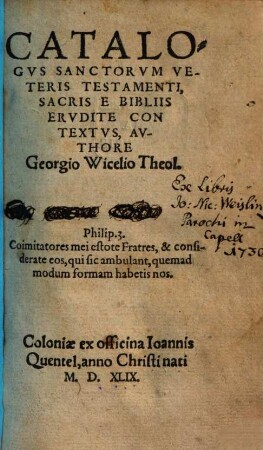 CATALO-
GVS SANCTORVM VE-
TERIS TESTAMENTI,
SACRIS E BIBLIIS
ERVDITE CON
TEXTVS, AV-
THORE
Georgio Wicelio Theol.
Ex Libris
Jo: Nic: Weislin
Parochi in
Capell
1730
Philip.3.
Coimitatores mei estote Fratres, & consi-
derate eos, qui sic ambulant, quemad
modum formam habetis nos.
Coloniæ ex officina Ioannis
Quentel, anno Christi nati
M. D. XLIX.